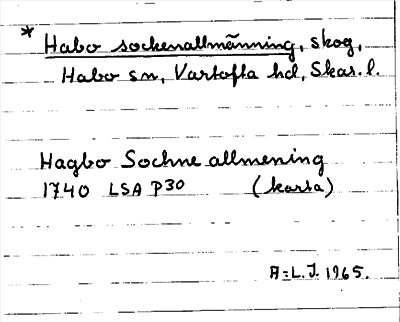 * Habo sockenallmänning, skog,
Habo sn, Vartofta hd, Skar. l.
Hagbo Sochne allmening
1740 LSA P30 (karta)
A:L.J. 1965.